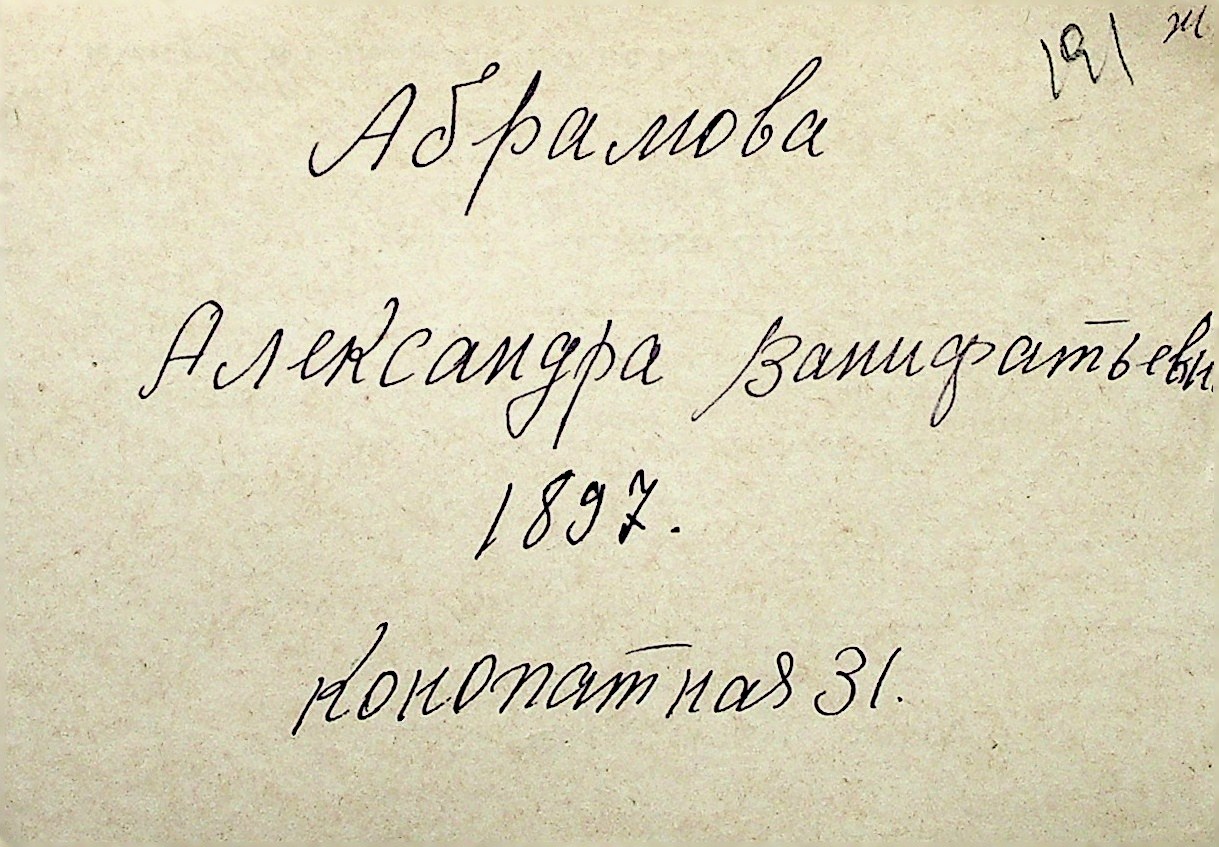 191 ж
Абрамова
Александра Ванифатьевн
1897.
Конопатная 31.